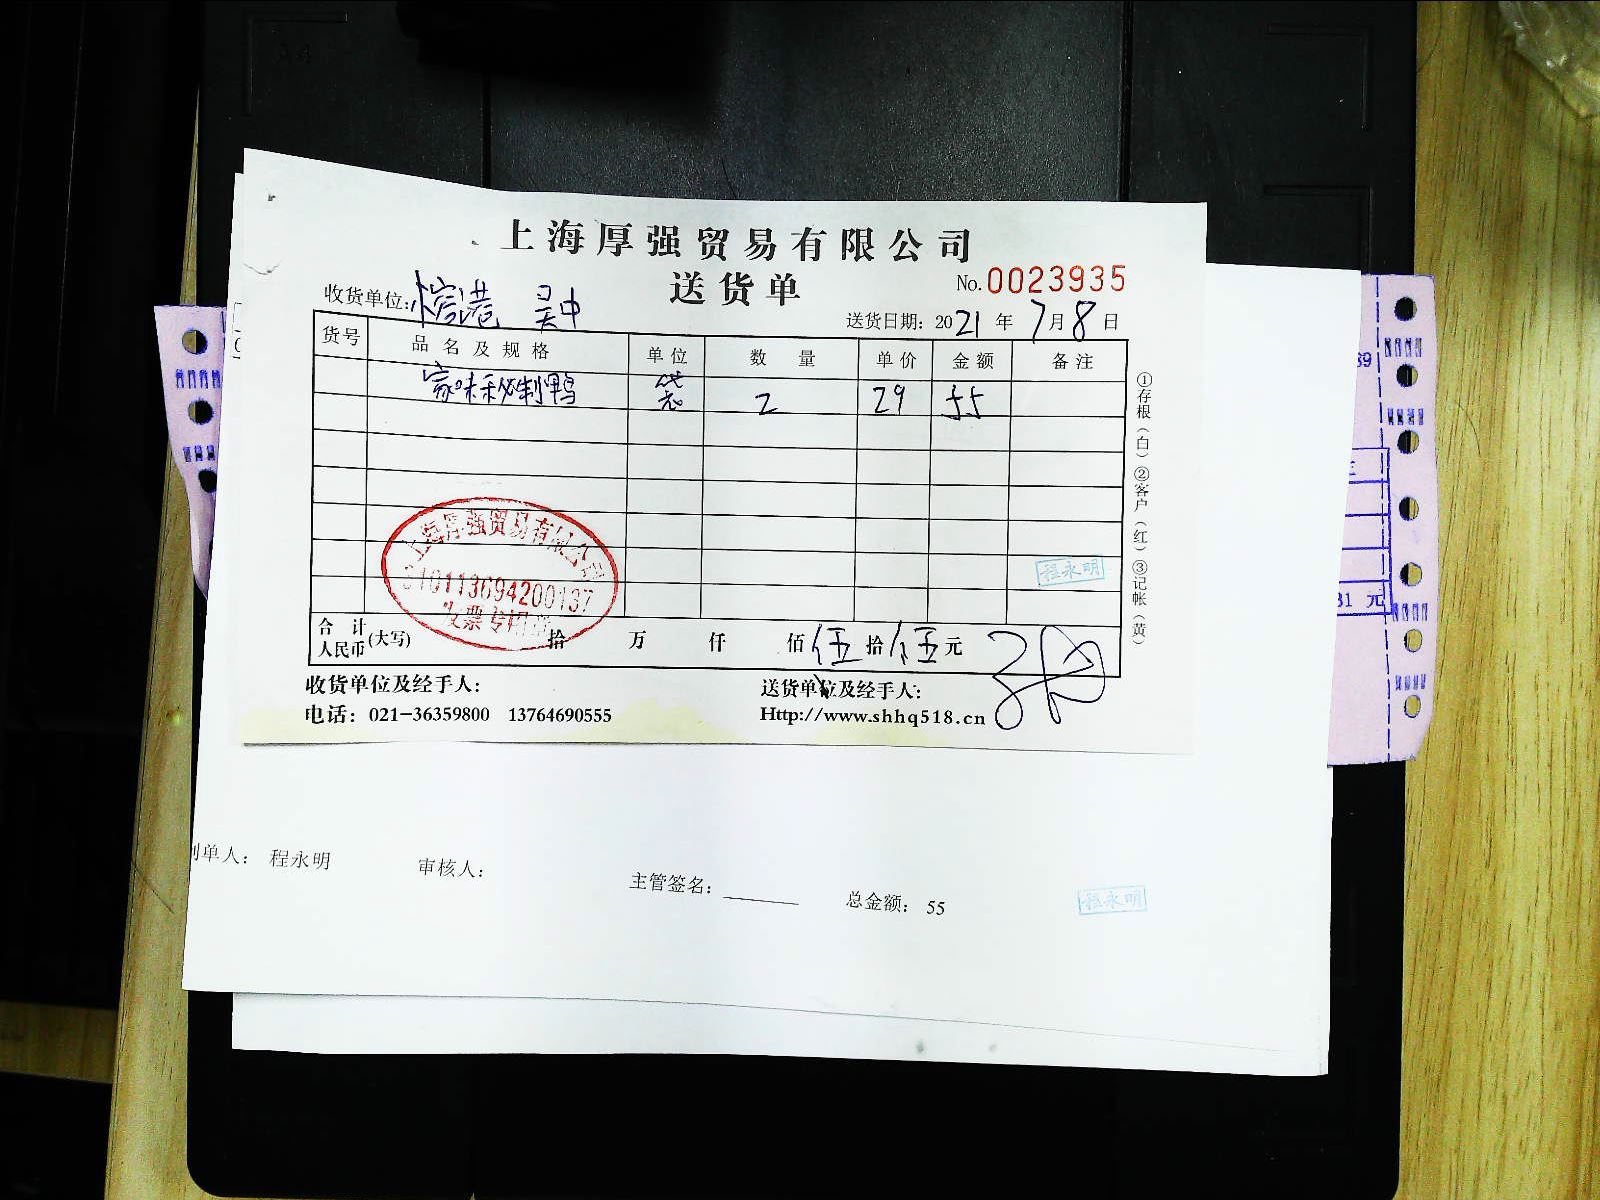 上海厚强贸易有限公司
送货单
No.0023935
收货单位:愘港 吴中
送货日期: 2021年7月8日
货号 品名及规格 单位 数量 单价 金额 备注
家味秘制鸭 袋 2 29 55
①存根(白)②客户(红)③记帐(黄)
上海厚强贸易有限公司
310113694200137
发票专用章
程永明
合计人民币(大写) 拾 万 仟 佰 伍拾伍元
收货单位及经手人:
送货单位及经手人:
电话: 021-36359800 13764690555
Http://www.shhq518.cn
制单人: 程永明 审核人: 主管签名: 总金额: 55
程永明
39
31 元